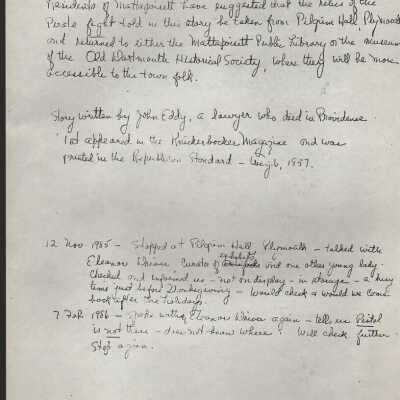 Residents of Mattapoisett have suggested that the relics of the
Pirate fight told in this story be taken from Pilgrim Hall, Plymouth
and returned to either the Mattapoisett Public Library or the museum
of the Old Dartmouth Historical Society, where they will be more
accessible to the town folk.
Story written by John Eddy, a lawyer who died in Providence.
1st appeared in the Knickerbocker Magazine and was
printed in the Republican Standard - Aug. 6, 1857.
12 Nov. 1985 - Stopped at Pilgrim Hall Plymouth - talked with
exhibits
Eleanor Driver Curator of and one other young lady.
Checked and informed us - not on display - in storage - a busy
time just before Thanksgiving - would check & would we come
back after the holidays.
7 Feb. 1986 - spoke with Eleanor Driver again - tells us Pistol
is not there - does not know where? Will check further.
Stop again.